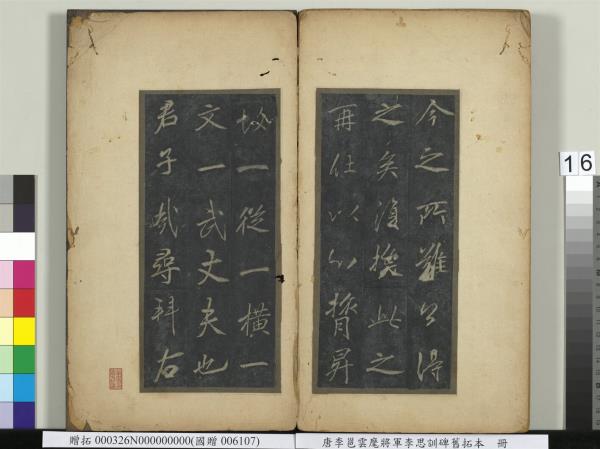 今之所難公得
之矣復換此之
再任以加膂昇
坳一從一橫一
文一武丈夫也
君子哉尋拜右
16
贈拓 000326N000000000(國贈 006107)
唐李邕雲麾將軍李思訓碑舊拓本 冊